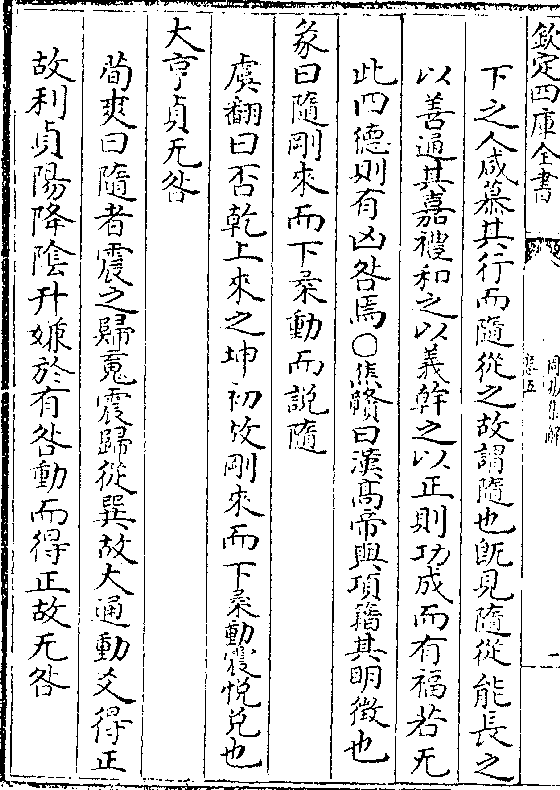 欽定四庫全書
周易集解
卷五
一
下之人咸慕其行而隨從之故謂隨也旣見隨從能長之
以善通其嘉禮和之以義幹之以正則功成而有福若无
此四德則有凶咎焉○焦贛曰漢高帝與項籍其明徵也
彖曰隨剛來而下柔動而説隨
虞翻曰否乾上來之坤初故剛來而下柔動震悅兌也
大亨貞无咎
荀爽曰隨者震之歸䰟震歸從巽故大通動爻得正
故利貞陽降陰升嫌於有咎動而得正故无咎